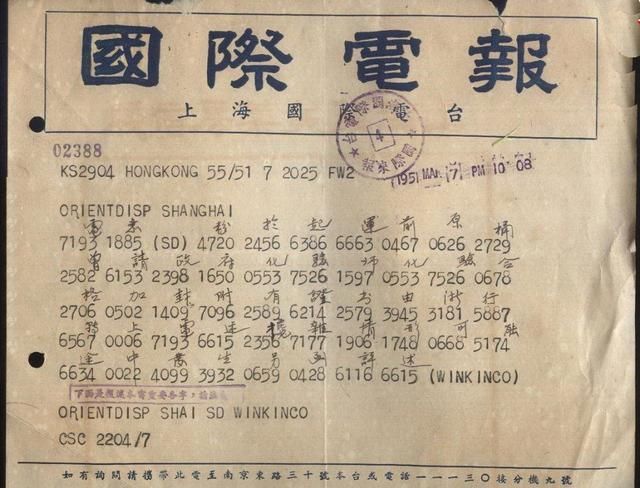 國際電報
上海國際電台
4
02388
KS2904 HONGKONG 55/51 7 2025 FW2
1951 MAR (7) PM 10 08
ORIENTDISP SHANGHAI
電悉 粉於起運前原桶
7193 1885 (SD) 4720 2456 6386 6663 0467 0626 2729
曾請政府化驗師化驗合
2582 6153 2398 1650 0553 7526 1597 0553 7526 0678
格加封 有證书由浙行
2706 0502 1409 7096 2589 6214 2579 3945 3181 5887
上電述 雜情形可融
6567 0006 7193 6615 2356 7177 1906 1748 0668 5174
途中發生另函詳述
6634 0022 4099 3932 0659 0428 6116 6615 (WINKINCO)
ORIENTDISP SHAI SD WINKINCO
CSC 2204/7
如有詢問請攜帶此電至南京東路三十號本台或電話一一一三〇接分機九號